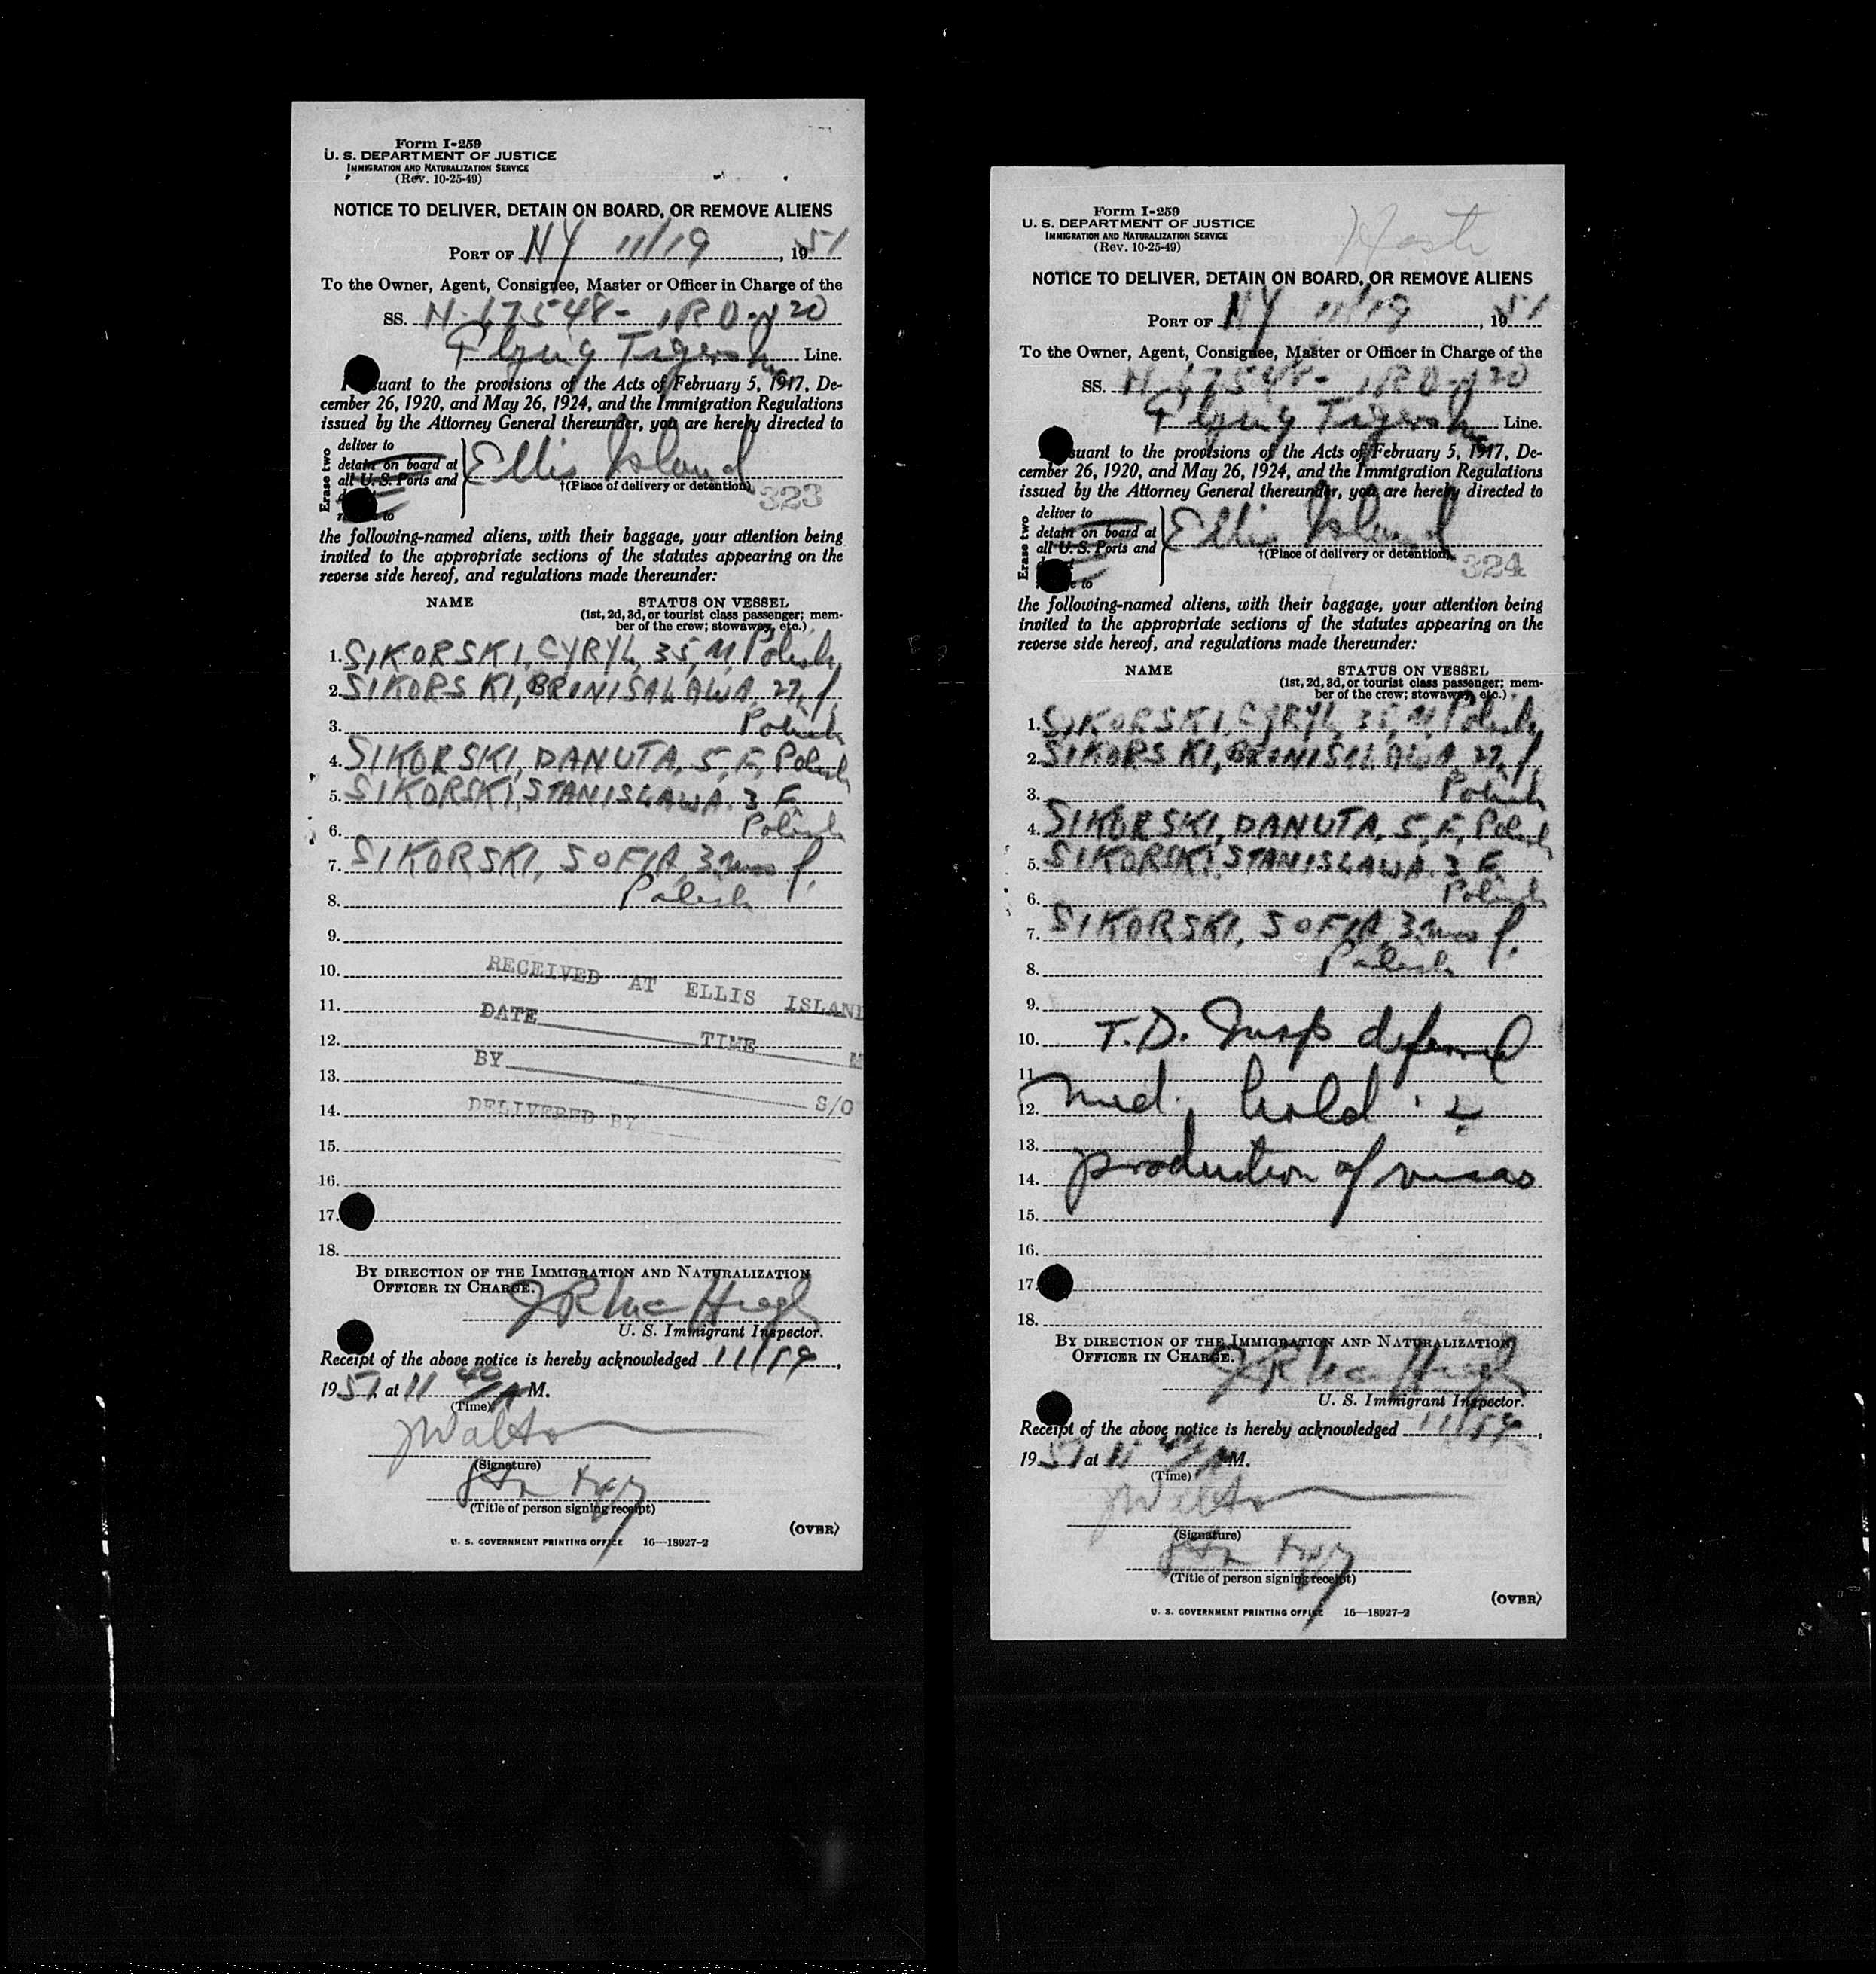 Form I-259
U. S. DEPARTMENT OF JUSTICE
IMMIGRATION AND NATURALIZATION SERVICE
(Rev. 10-25-49)
NOTICE TO DELIVER, DETAIN ON BOARD, OR REMOVE ALIENS
PORT OF NY 11/19, 1951
To the Owner, Agent, Consignee, Master or Officer in Charge of the
SS. N-67548- IRO-#20
Flying Tigers Line.
suant to the provisions of the Acts of February 5, 1917, De-
cember 26, 1920, and May 26, 1924, and the Immigration Regulations
issued by the Attorney General thereunder, you are hereby directed to
Erase two
deliver to
detain on board at
all U. S. Ports and
to
Ellis Island
†(Place of delivery or detention)
323
the following-named aliens, with their baggage, your attention being
invited to the appropriate sections of the statutes appearing on the
reverse side hereof, and regulations made thereunder:
NAME STATUS ON VESSEL
(1st, 2d, 3d, or tourist class passenger; mem-
ber of the crew; stowaway, etc.)
1. SIKORSKI, CYRYL, 35, M, Polish
2. SIKORSKI, BRONISALAWA 27, f,
3. Polish
4. SIKORSKI, DANUTA, 5, F, Polish
5. SIKORSKI, STANISLAWA. 3 F.
6. Polish
7. SIKORSKI, SOFIA, 3 mos f.
8. Polish
9.
10.
RECEIVED AT ELLIS ISLAND
11.
DATE TIME M
12.
BY
13.
S/O
14.
DELIVERED BY
15.
16.
17.
18.
BY DIRECTION OF THE IMMIGRATION AND NATURALIZATION
OFFICER IN CHARGE.
J R McHugh
U. S. Immigrant Inspector.
Receipt of the above notice is hereby acknowledged 11/19,
1951 at 11 40 A M.
(Time)
(Signature)
(Title of person signing receipt)
(OVER)
U. S. GOVERNMENT PRINTING OFFICE 16—18927-2
Form I-259
U. S. DEPARTMENT OF JUSTICE
IMMIGRATION AND NATURALIZATION SERVICE
(Rev. 10-25-49)
NOTICE TO DELIVER, DETAIN ON BOARD, OR REMOVE ALIENS
PORT OF NY 11/19, 1951
To the Owner, Agent, Consignee, Master or Officer in Charge of the
SS. N-67548- IRO-#20
Flying Tigers Line.
suant to the provisions of the Acts of February 5, 1917, De-
cember 26, 1920, and May 26, 1924, and the Immigration Regulations
issued by the Attorney General thereunder, you are hereby directed to
Erase two
deliver to
detain on board at
all U. S. Ports and
to
Ellis Island
†(Place of delivery or detention)
324
the following-named aliens, with their baggage, your attention being
invited to the appropriate sections of the statutes appearing on the
reverse side hereof, and regulations made thereunder:
NAME STATUS ON VESSEL
(1st, 2d, 3d, or tourist class passenger; mem-
ber of the crew; stowaway, etc.)
1. SIKORSKI, CYRYL, 35, M, Polish
2. SIKORSKI, BRONISALAWA 27, f,
3. Polish
4. SIKORSKI, DANUTA, 5, F, Polish
5. SIKORSKI, STANISLAWA. 3 F.
6. Polish
7. SIKORSKI, SOFIA, 3 mos f.
8. Polish
9.
10. T.D. Insp deferred
11.
12. med. hold &
13.
14. production of visas
15.
16.
17.
18.
BY DIRECTION OF THE IMMIGRATION AND NATURALIZATION
OFFICER IN CHARGE.
J R McHugh
U. S. Immigrant Inspector.
Receipt of the above notice is hereby acknowledged 11/19,
1951 at 11 40 A M.
(Time)
(Signature)
(Title of person signing receipt)
(OVER)
U. S. GOVERNMENT PRINTING OFFICE 16—18927-2